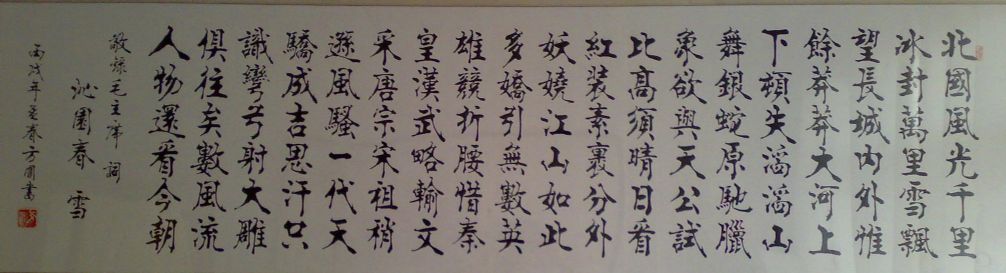 北國風光千里
冰封萬里雪飄
望長城內外惟
餘莽莽大河上
下頓失滔滔山
舞銀蛇原馳臘
象欲與天公試
比高須晴日看
紅裝素裹分外
妖嬈江山如此
多嬌引無數英
雄競折腰惜秦
皇漢武略輸文
采唐宗宋祖稍
遜風騷一代天
驕成吉思汗只
識彎弓射大雕
俱往矣數風流
人物還看今朝
敬錄毛主席詞
沁園春 雪
丙戌年春方書